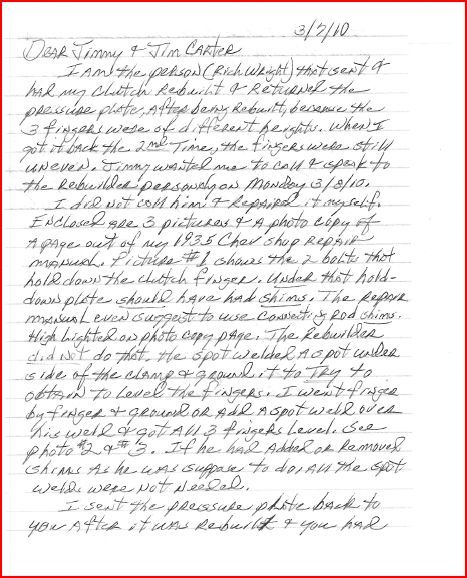 3/7/10
Dear Jimmy & Jim Carter
I am the person (Rich Wright) that sent &
had my clutch rebuilt & returned the
pressure plate, after being rebuilt, because the
3 fingers were of different heights. When I
got it back the 2nd time, the fingers were still
uneven. Jimmy wanted me to call & speak to
the rebuilder personally on Monday 3/8/10.
I did not call him & repaired it myself.
Enclosed are 3 pictures & a photo copy of
a page out of my 1935 Chev shop repair
manual. Picture #1 shows the 2 bolts that
hold down the clutch finger. Under that hold-
down plate should have had shims. The repair
manual even suggest to use connecting rod shims.
High Lighted on photo copy page. The rebuilder
did not do that. He spot welded a spot under
side of the clamp & ground it to try to
obtain to level the fingers. I went finger
by finger & ground or add a spot weld over
his weld & got all 3 fingers level. See
photo #2 & #3. If he had added or removed
shims as he was suppose to do, all the spot
welds were not needed.
I sent the pressure plate back to
you after it was rebuilt & you had